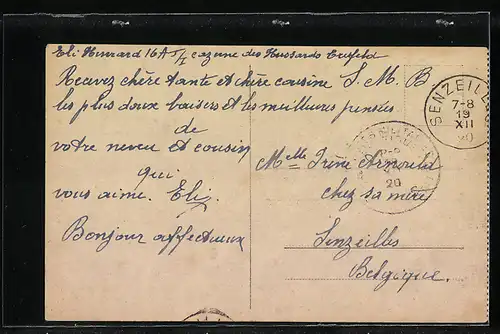 Eli Henrard 16 A 5/I cazerne des Hussards Crefeld
Recevez chère tante et chère cousine S. M. B
les plus doux baisers et les meilleures pensées
de
votre neveu et cousin
qui
vous aime. Eli.
Bonjour affectueux
Melle Irène Arnould
chez sa mère
Senzeilles
Belgique.
SENZEILLES
7-8
19
XII
20
20